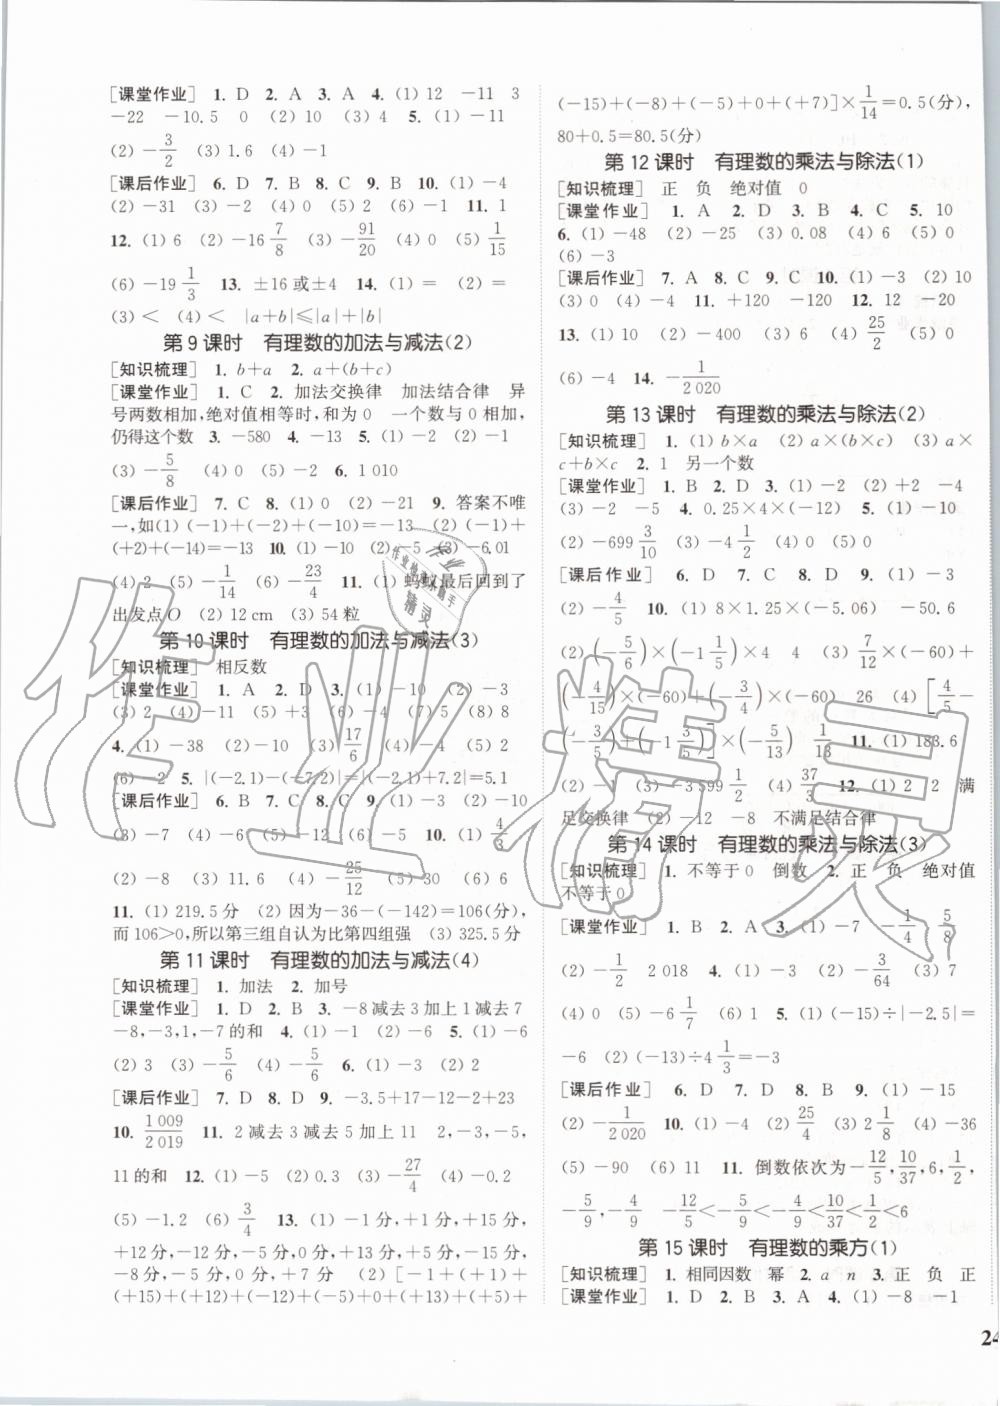 [课堂作业] 1. D 2. A 3. A 4. (1) 12 -11 3
-22 -10.5 0 (2) 10 (3) 4 5. (1) -11
(2) -3/2 (3) 1.6 (4) -1
[课后作业] 6. D 7. B 8. C 9. B 10. (1) -4
(2) -31 (3) -2 (4) 0 (5) 2 (6) -1 11. 1
12. (1) 6 (2) -16 7/8 (3) -91/20 (4) 0 (5) 1/15
(6) -19 1/3 13. ±16或±4 14. (1) = (2) =
(3) < (4) < |a+b|≤|a|+|b|
第 9 课时 有理数的加法与减法(2)
[知识梳理] 1. b+a 2. a+(b+c)
[课堂作业] 1. C 2. 加法交换律 加法结合律 异
号两数相加,绝对值相等时,和为 0 一个数与 0 相加,
仍得这个数 3. -580 4. -13 5. (1) -2 (2) -1
(3) -5/8 (4) 0 (5) -2 6. 1 010
[课后作业] 7. C 8. (1) 0 (2) -21 9. 答案不唯
一,如(1) (-1)+(-2)+(-10)=-13 (2) (-1)+
(+2)+(-14)=-13 10. (1) -10 (2) -5 (3) -6.01
(4) 2 (5) -1/14 (6) -23/4 11. (1) 蚂蚁最后回到了
出发点 O (2) 12 cm (3) 54 粒
第 10 课时 有理数的加法与减法(3)
[知识梳理] 相反数
[课堂作业] 1. A 2. D 3. (1) -10 (2) -3
(3) 2 (4) -11 (5) +3 (6) -4 (7) 5 (8) 8
4. (1) -38 (2) -10 (3) 17/6 (4) -4 (5) 2
(6) -2 5. |(-2.1)-(-7.2)|=|(-2.1)+7.2|=5.1
[课后作业] 6. B 7. C 8. C 9. (1) -3 (2) -10
(3) -7 (4) -6 (5) -12 (6) -5 10. (1) 4/3
(2) -8 (3) 11.6 (4) -25/12 (5) 30 (6) 6
11. (1) 219.5 分 (2) 因为-36-(-142)=106(分),
而 106>0,所以第三组自认为比第四组强 (3) 325.5 分
第 11 课时 有理数的加法与减法(4)
[知识梳理] 1. 加法 2. 加号
[课堂作业] 1. D 2. B 3. -8 减去 3 加上 1 减去 7
-8,-3,1,-7 的和 4. (1) -1 (2) -6 5. (1) -6
(2) 3 (3) -5/6 (4) -5/6 6. (1) -3 (2) 2
[课后作业] 7. D 8. D 9. -3.5+17-12-2+23
10. 1 009/2 019 11. 2 减去 3 减去 5 加上 11 2,-3,-5,
11 的和 12. (1) -5 (2) 0.3 (3) -27/4 (4) -0.2
(5) -1.2 (6) 3/4 13. (1) -1 分,+1 分,+15 分,
+12 分,-12 分,-5 分,0 分,+13 分,+5 分,-15 分,
-8 分,-5 分,0 分,+7 分 (2) [-1+(+1)+
(+15)+(+12)+(-12)+(-5)+0+(+13)+(+5)+
(-15)+(-8)+(-5)+0+(+7)]×1/14=0.5(分),
80+0.5=80.5(分)
第 12 课时 有理数的乘法与除法(1)
[知识梳理] 正 负 绝对值 0
[课堂作业] 1. A 2. D 3. B 4. C 5. 10
6. (1) -48 (2) -25 (3) 0.08 (4) 6 (5) 0
(6) -3
[课后作业] 7. A 8. C 9. C 10. (1) -3 (2) 10
(3) 0 (4) -4 11. +120 -120 12. 12 -20
13. (1) 10 (2) -400 (3) 6 (4) 25/2 (5) 0
(6) -4 14. -1/2 020
第 13 课时 有理数的乘法与除法(2)
[知识梳理] 1. (1) b×a (2) a×(b×c) (3) a×
c+b×c 2. 1 另一个数
[课堂作业] 1. B 2. D 3. (1) -2 (2) +2 -4
(3) -2 -5 4. 0.25×4×(-12) 5. (1) -10
(2) -699 3/10 (3) -4 1/2 (4) 0 (5) 0
[课后作业] 6. D 7. C 8. C 9. (1) -3
(2) -4/5 10. (1) 8×1.25×(-5.06) -50.6
(2) (-5/6)×(-1 1/5)×4 4 (3) 7/12×(-60)+
(-4/15)×(-60)+(-3/4)×(-60) 26 (4) [4/5-
(-3/5)+(-1 3/5)]×(-5/13) 1/13 11. (1) 183.6
(2) -1 (3) -3 599 1/2 (4) 37/3 12. (1) 2 2 满
足交换律 (2) -12 -8 不满足结合律
第 14 课时 有理数的乘法与除法(3)
[知识梳理] 1. 不等于 0 倒数 2. 正 负 绝对值
不等于 0
[课堂作业] 1. B 2. A 3. (1) -7 -1/4 5/8
(2) -1/2 2 018 4. (1) -3 (2) -3/64 (3) 7
(4) 0 (5) -6 1/7 (6) 1 5. (1) (-15)÷|-2.5|=
-6 (2) (-13)÷4 1/3=-3
[课后作业] 6. D 7. D 8. B 9. (1) -15
(2) -1/2 020 10. (1) -4 (2) 25/4 (3) 2 1/8 (4) -36
(5) -90 (6) 11 11. 倒数依次为-12/5,10/37,6,1/2,
-5/9,-4/9 -12/5<-5/9<-4/9<10/37<1/2<6
第 15 课时 有理数的乘方(1)
[知识梳理] 1. 相同因数 幂 2. a n 3. 正 负 正
[课堂作业] 1. D 2. B 3. A 4. (1) -8 -1
24
作业精灵